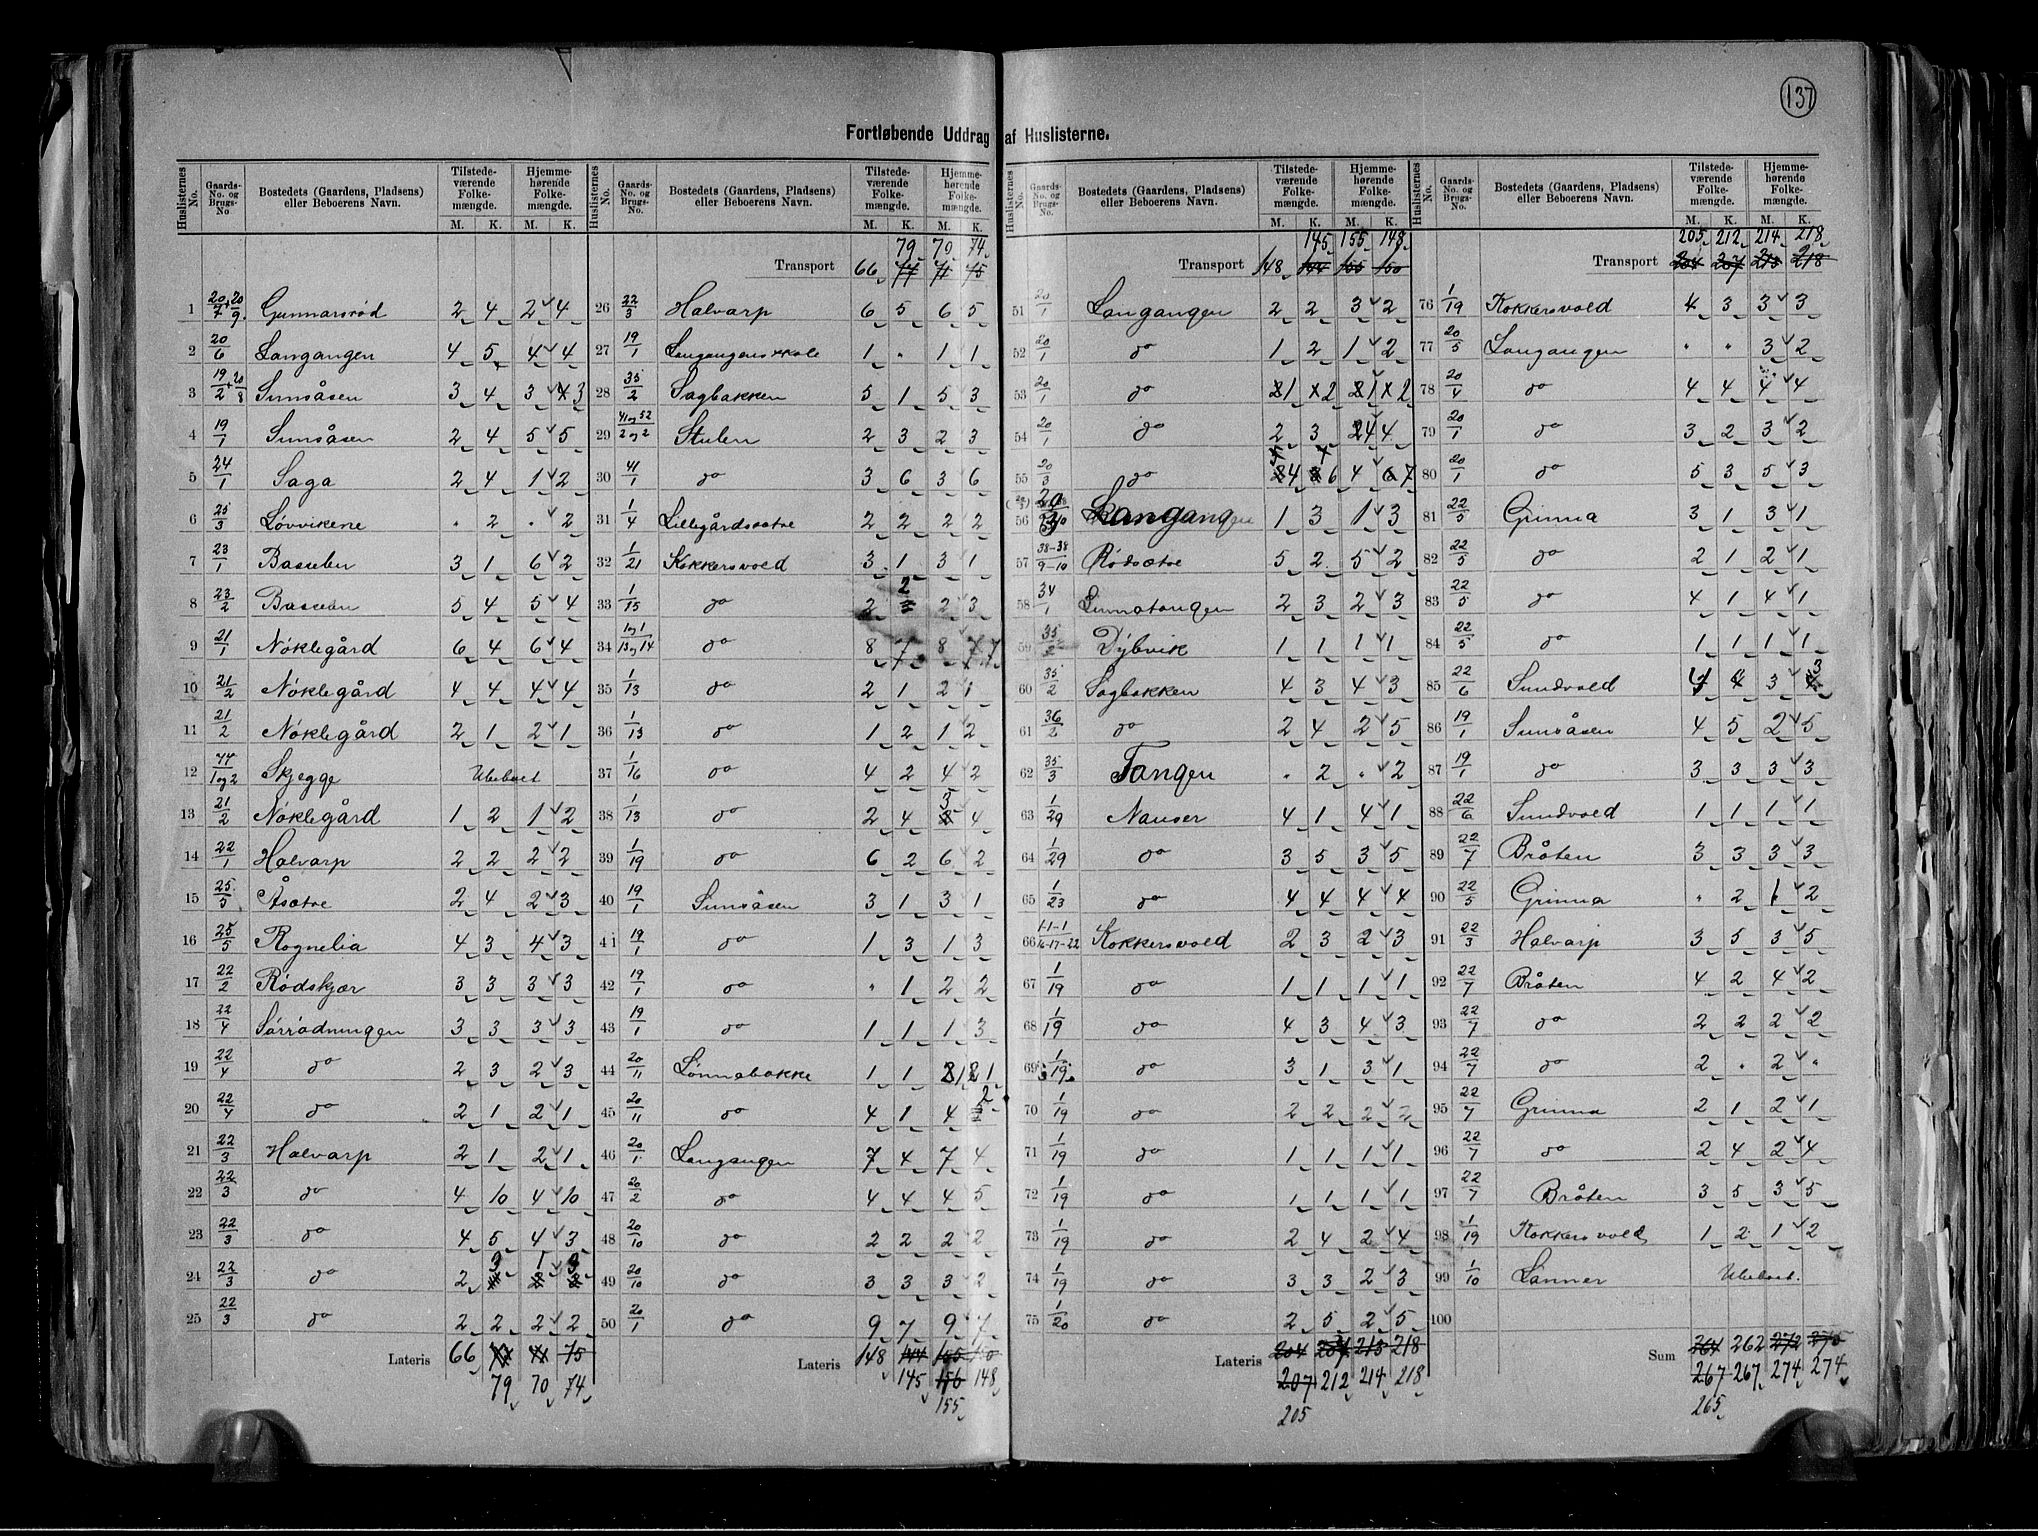 137
Fortløbende Uddrag af Huslisterne.
Huslisternes No. | Gaards-No. og Brugs-No | Bostedets (Gaardens, Pladsens) eller Beboerens Navn. | Tilstedeværende Folkemængde. M. K. | Hjemmehørende Folkemængde. M. K.
1 20/7+20/9 Gunnarsrød 2 4 2 4
2 20/6 Langangen 4 5 4 4
3 19/2+20/8 Sunsåsen 3 4 3 3
4 19/1 Sunsåsen 2 4 5 5
5 24/1 Saga 2 4 1 2
6 25/3 Løvvikene " 2 " 2
7 23/1 Basseben 3 1 6 2
8 23/2 Basseben 5 4 5 4
9 21/1 Nøklegård 6 4 6 4
10 21/2 Nøklegård 4 4 4 4
11 21/2 Nøklegård 2 1 2 1
12 44/1og2 Skjegge Ubeboet
13 21/2 Nøklegård 1 2 1 2
14 22/1 Halvarp 2 2 2 2
15 25/5 Åsætre 2 4 2 3
16 25/5 Rognelia 4 3 4 3
17 22/2 Rødskjær 3 3 3 3
18 22/4 Sørrødningen 3 3 3 3
19 22/4 do 2 3 2 3
20 22/4 do 2 1 2 1
21 22/3 Halvarp 2 1 2 1
22 22/3 do 4 10 4 10
23 22/3 do 4 5 4 3
24 22/3 do 2 3 1 3
25 22/3 do 2 2 2 2
Lateris 66 77 71 75
79 70 74
Huslisternes No. | Gaards-No. og Brugs-No. | Bostedets (Gaardens, Pladsens) eller Beboerens Navn. | Tilstedeværende Folkemængde. M. K. | Hjemmehørende Folkemængde. M. K.
79 70 74
Transport 66 77 71 75
26 22/3 Halvarp 6 5 6 5
27 19/1 Langangenskole 1 " 1 1
28 35/2 Sagbakken 5 1 5 3
29 41og52/2og2 Stulen 2 3 2 3
30 41/1 do 3 6 3 6
31 1/4 Lillegårdsætre 2 2 2 2
32 1/21 Kokkersvold 3 1 3 1
33 1/15 do 2 2 2 3
34 1og1/13og14 do 8 7 8 7
35 1/13 do 2 1 2 1
36 1/13 do 1 2 1 2
37 1/16 do 4 2 4 2
38 1/13 do 2 4 3 4
39 1/19 do 6 2 6 2
40 19/1 Sunsåsen 3 1 3 1
41 19/1 do 1 3 1 3
42 19/1 do " 1 2 2
43 19/1 do 1 1 1 3
44 20/11 Lønnebakke 1 1 1 1
45 20/11 do 4 1 4 2
46 20/1 Langangen 7 4 7 4
47 20/2 do 4 4 4 5
48 20/10 do 2 2 2 2
49 20/10 do 3 3 3 2
50 20/1 do 9 7 9 7
Lateris 148 144 155 150
145 156 148
155
Huslisternes No. | Gaards-No. og Brugs-No. | Bostedets (Gaardens, Pladsens) eller Beboerens Navn. | Tilstedeværende Folkemængde. M. K. | Hjemmehørende Folkemængde. M. K.
145 155 148
Transport 148 144 155 150
51 20/1 Langangen 2 2 3 2
52 20/1 do 1 2 1 2
53 20/1 do 1 2 1 2
54 20/1 do 2 3 4 4
55 20/3 do 4 6 4 7
56 20/3 Langangen 1 3 1 3
57 38-38/9-10 Rødsætre 5 2 5 2
58 34/1 Lunnatangen 2 3 2 3
59 35/2 Dybvik 1 1 1 1
60 35/2 Sagbakken 4 3 4 3
61 36/2 do 2 4 2 5
62 35/3 Tangen " 2 " 2
63 1/29 Nauser 4 1 4 1
64 1/29 do 3 5 3 5
65 1/23 do 4 4 4 4
66 1-1-1/16-17-22 Kokkersvold 2 3 2 3
67 1/19 do 1 1 1 1
68 1/19 do 4 3 4 3
69 1/19 do 3 1 3 1
70 1/19 do 2 2 2 2
71 1/19 do 1 1 1 1
72 1/19 do 1 1 1 1
73 1/19 do 2 4 2 4
74 1/19 do 3 3 2 3
75 1/20 do 2 5 2 5
Lateris 204 207 213 218
207 212 214 218
205
Huslisternes No. | Gaards-No. og Brugs-No. | Bostedets (Gaardens, Pladsens) eller Beboerens Navn. | Tilstedeværende Folkemængde. M. K. | Hjemmehørende Folkemængde. M. K.
205 212 214 218
Transport 204 207 213 218
76 1/19 Kokkersvold 4 3 3 3
77 20/5 Langangen " " 3 2
78 20/4 do 4 4 4 4
79 20/1 do 3 2 3 2
80 20/1 do 5 3 5 3
81 22/5 Grinna 3 1 3 1
82 22/5 do 2 1 2 1
83 22/5 do 4 1 4 1
84 22/5 do 1 1 1 1
85 22/6 Sundvold 4 3 3
86 19/1 Sunsåsen 4 5 2 5
87 19/1 do 3 3 3 3
88 22/6 Sundvold 1 1 1 1
89 22/7 Bråten 3 3 3 3
90 22/5 Grinna " 2 1 2
91 22/3 Halvarp 3 5 3 5
92 22/7 Bråten 4 2 4 2
93 22/7 do 2 2 2 2
94 22/7 do 2 " 2 "
95 22/7 Grinna 2 1 2 1
96 22/7 do 2 4 2 4
97 22/7 Bråten 3 5 3 5
98 1/19 Kokkersvold 1 2 1 2
99 1/10 Lanner Ubeboet.
100
Sum 264 262 272 270
267 267 274 274
265